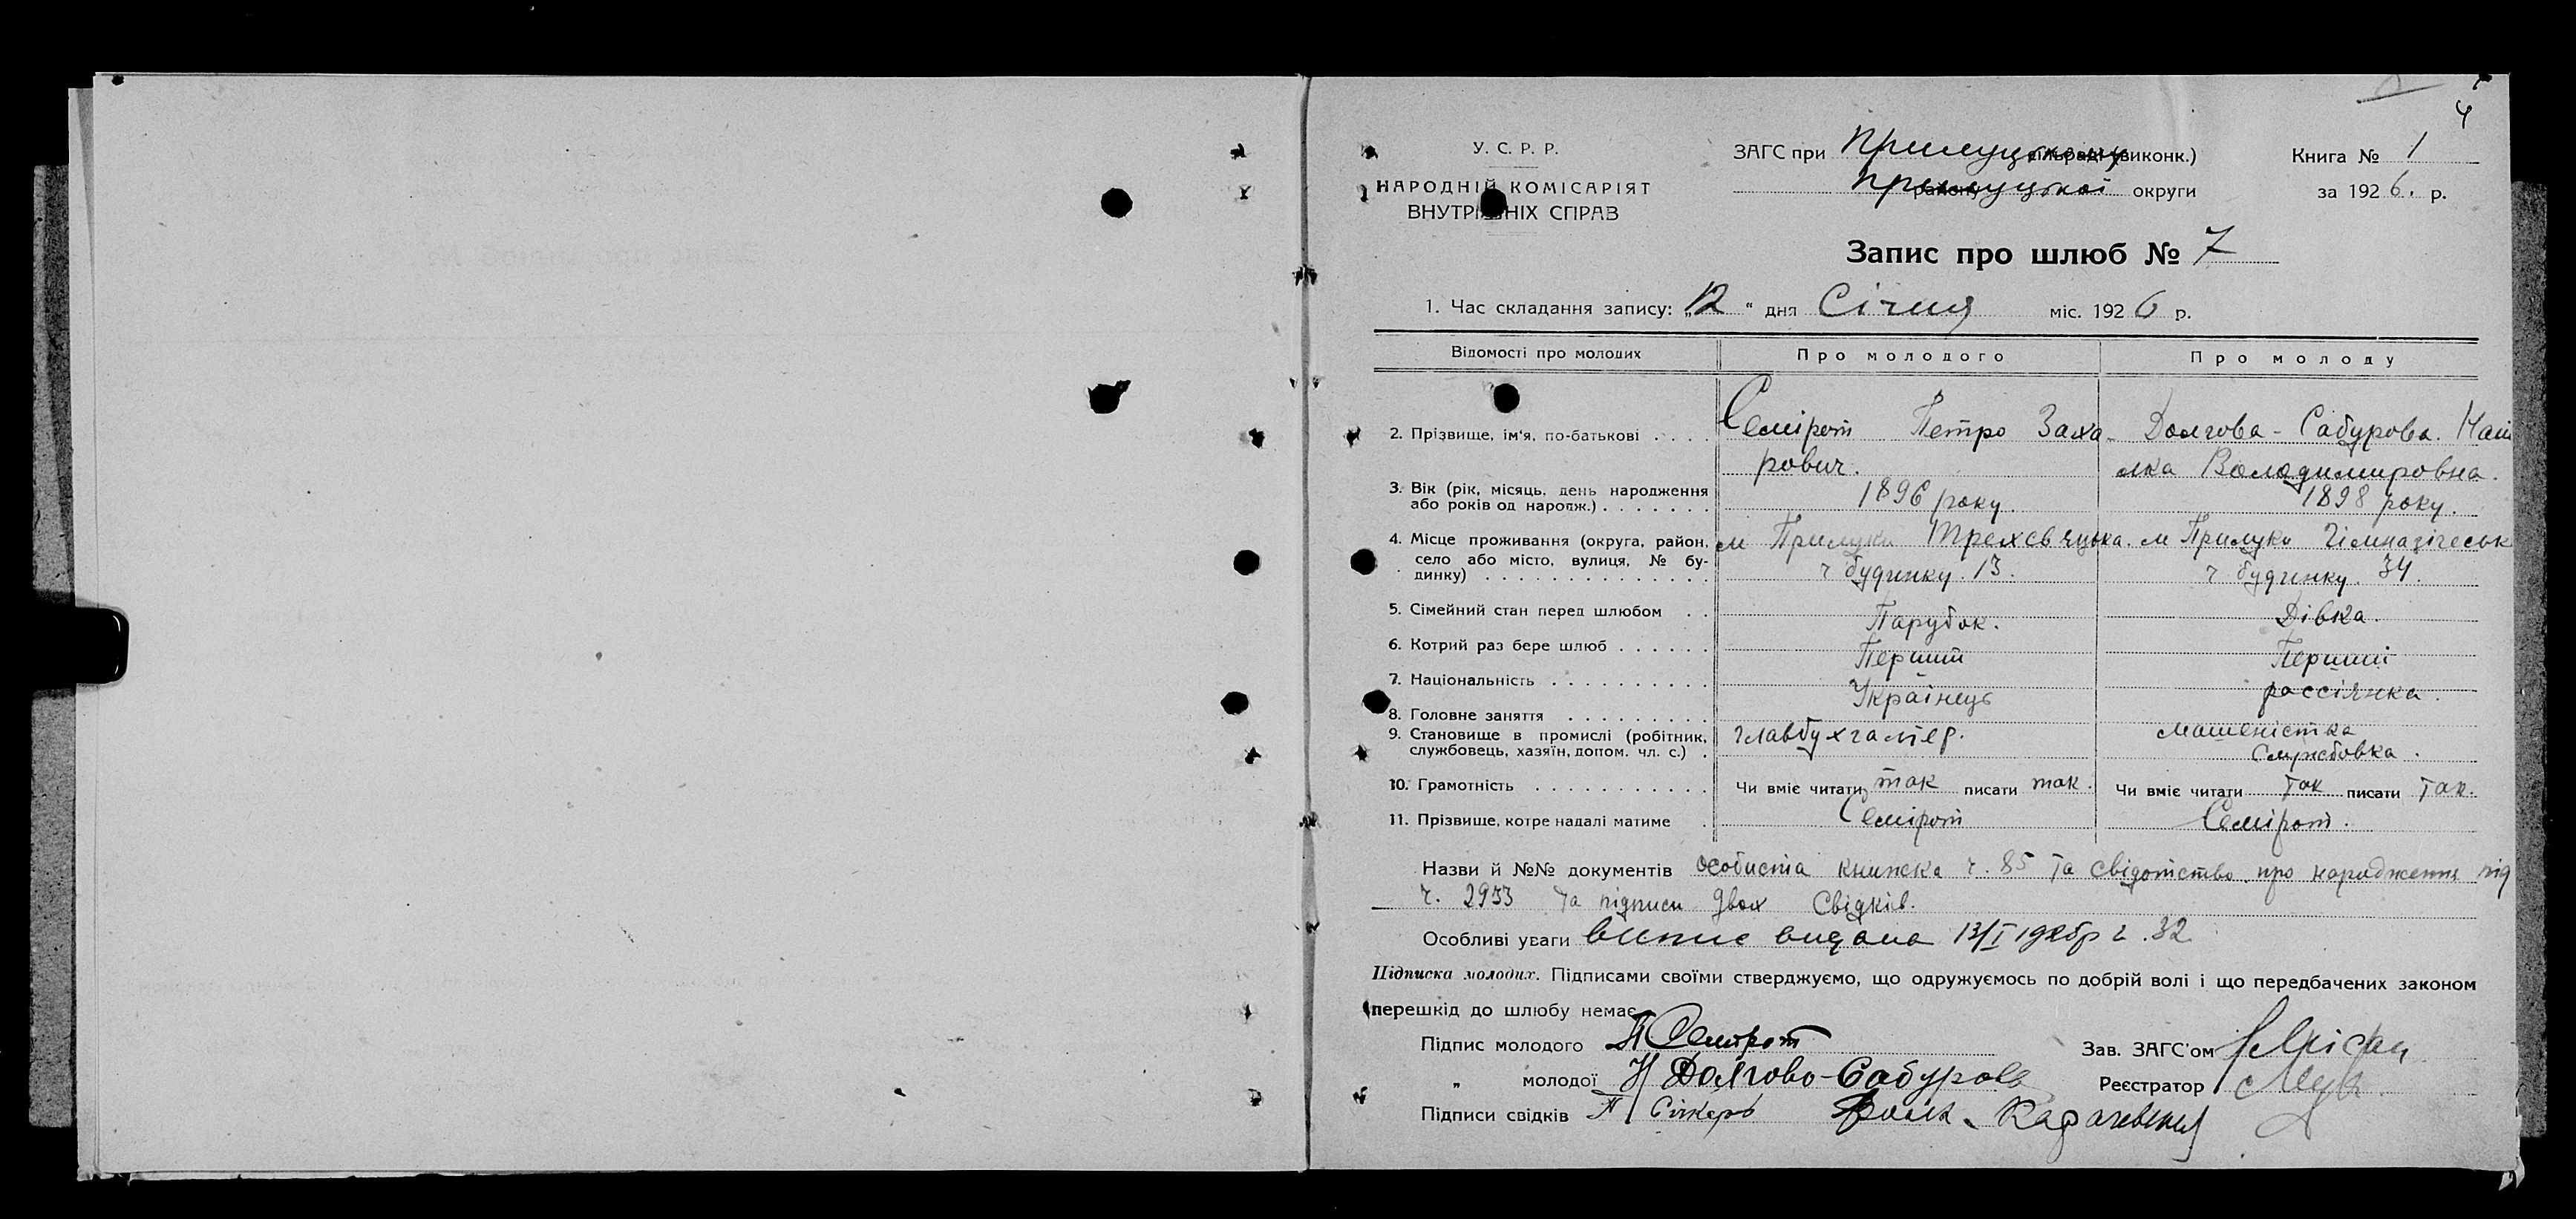 4
У. С. Р. Р.
НАРОДНІЙ КОМІСАРІЯТ
ВНУТРІШНІХ СПРАВ
ЗАГС при Прилуцькому виконк.)
Прилуцької округи
Книга № 1
за 1926. р.
Запис про шлюб № 7
1. Час складання запису: „12“ дня Січня міс. 1926 р.
Відомості про молодих Про молодого Про молоду
2. Прізвище, ім'я, по-батькові . . . . Семірот Петро Заха- Долгова-Сабурова.
рович. Володимировна.
3. Вік (рік, місяць, день народження
або років од народж.) . . . . . . . 1896 року. 1898 року.
4. Місце проживання (округа, район, м Прилуки Трехсвяцька. м Прилуки Гімназічеськ
село або місто, вулиця, № бу- ч будинку. 13. ч будинку. 34.
динку) . . . . . . . . . . . . . .
5. Сімейний стан перед шлюбом . . Парубок. Дівка.
6. Котрий раз бере шлюб . . . . . . Перший Перший
7. Національність . . . . . . . . . . Українець россіянка.
8. Головне заняття . . . . . . . . .
9. Становище в промислі (робітник, главбухгалтер. машеністка
службовець, хазяїн, допом. чл. с.) . Службовка.
10. Грамотність . . . . . . . . . . . Чи вміє читати так писати так. Чи вміє читати так писати так.
11. Прізвище, котре надалі матиме . Семірот Семірот.
Назви й №№ документів особиста книжка ч. 85 та свідотство про народження під
ч. 2933 та підписи двох Свідків.
Особливі уваги випис видана 13/I 1926р ч. 32
Підписка молодих. Підписами своїми стверджуємо, що одружуємось по добрій волі і що передбачених законом
перешкід до шлюбу немає
Підпис молодого П Семірот
Зав. ЗАГС'ом
„ молодої Н Долгово-Сабурова
Реєстратор
Підписи свідків